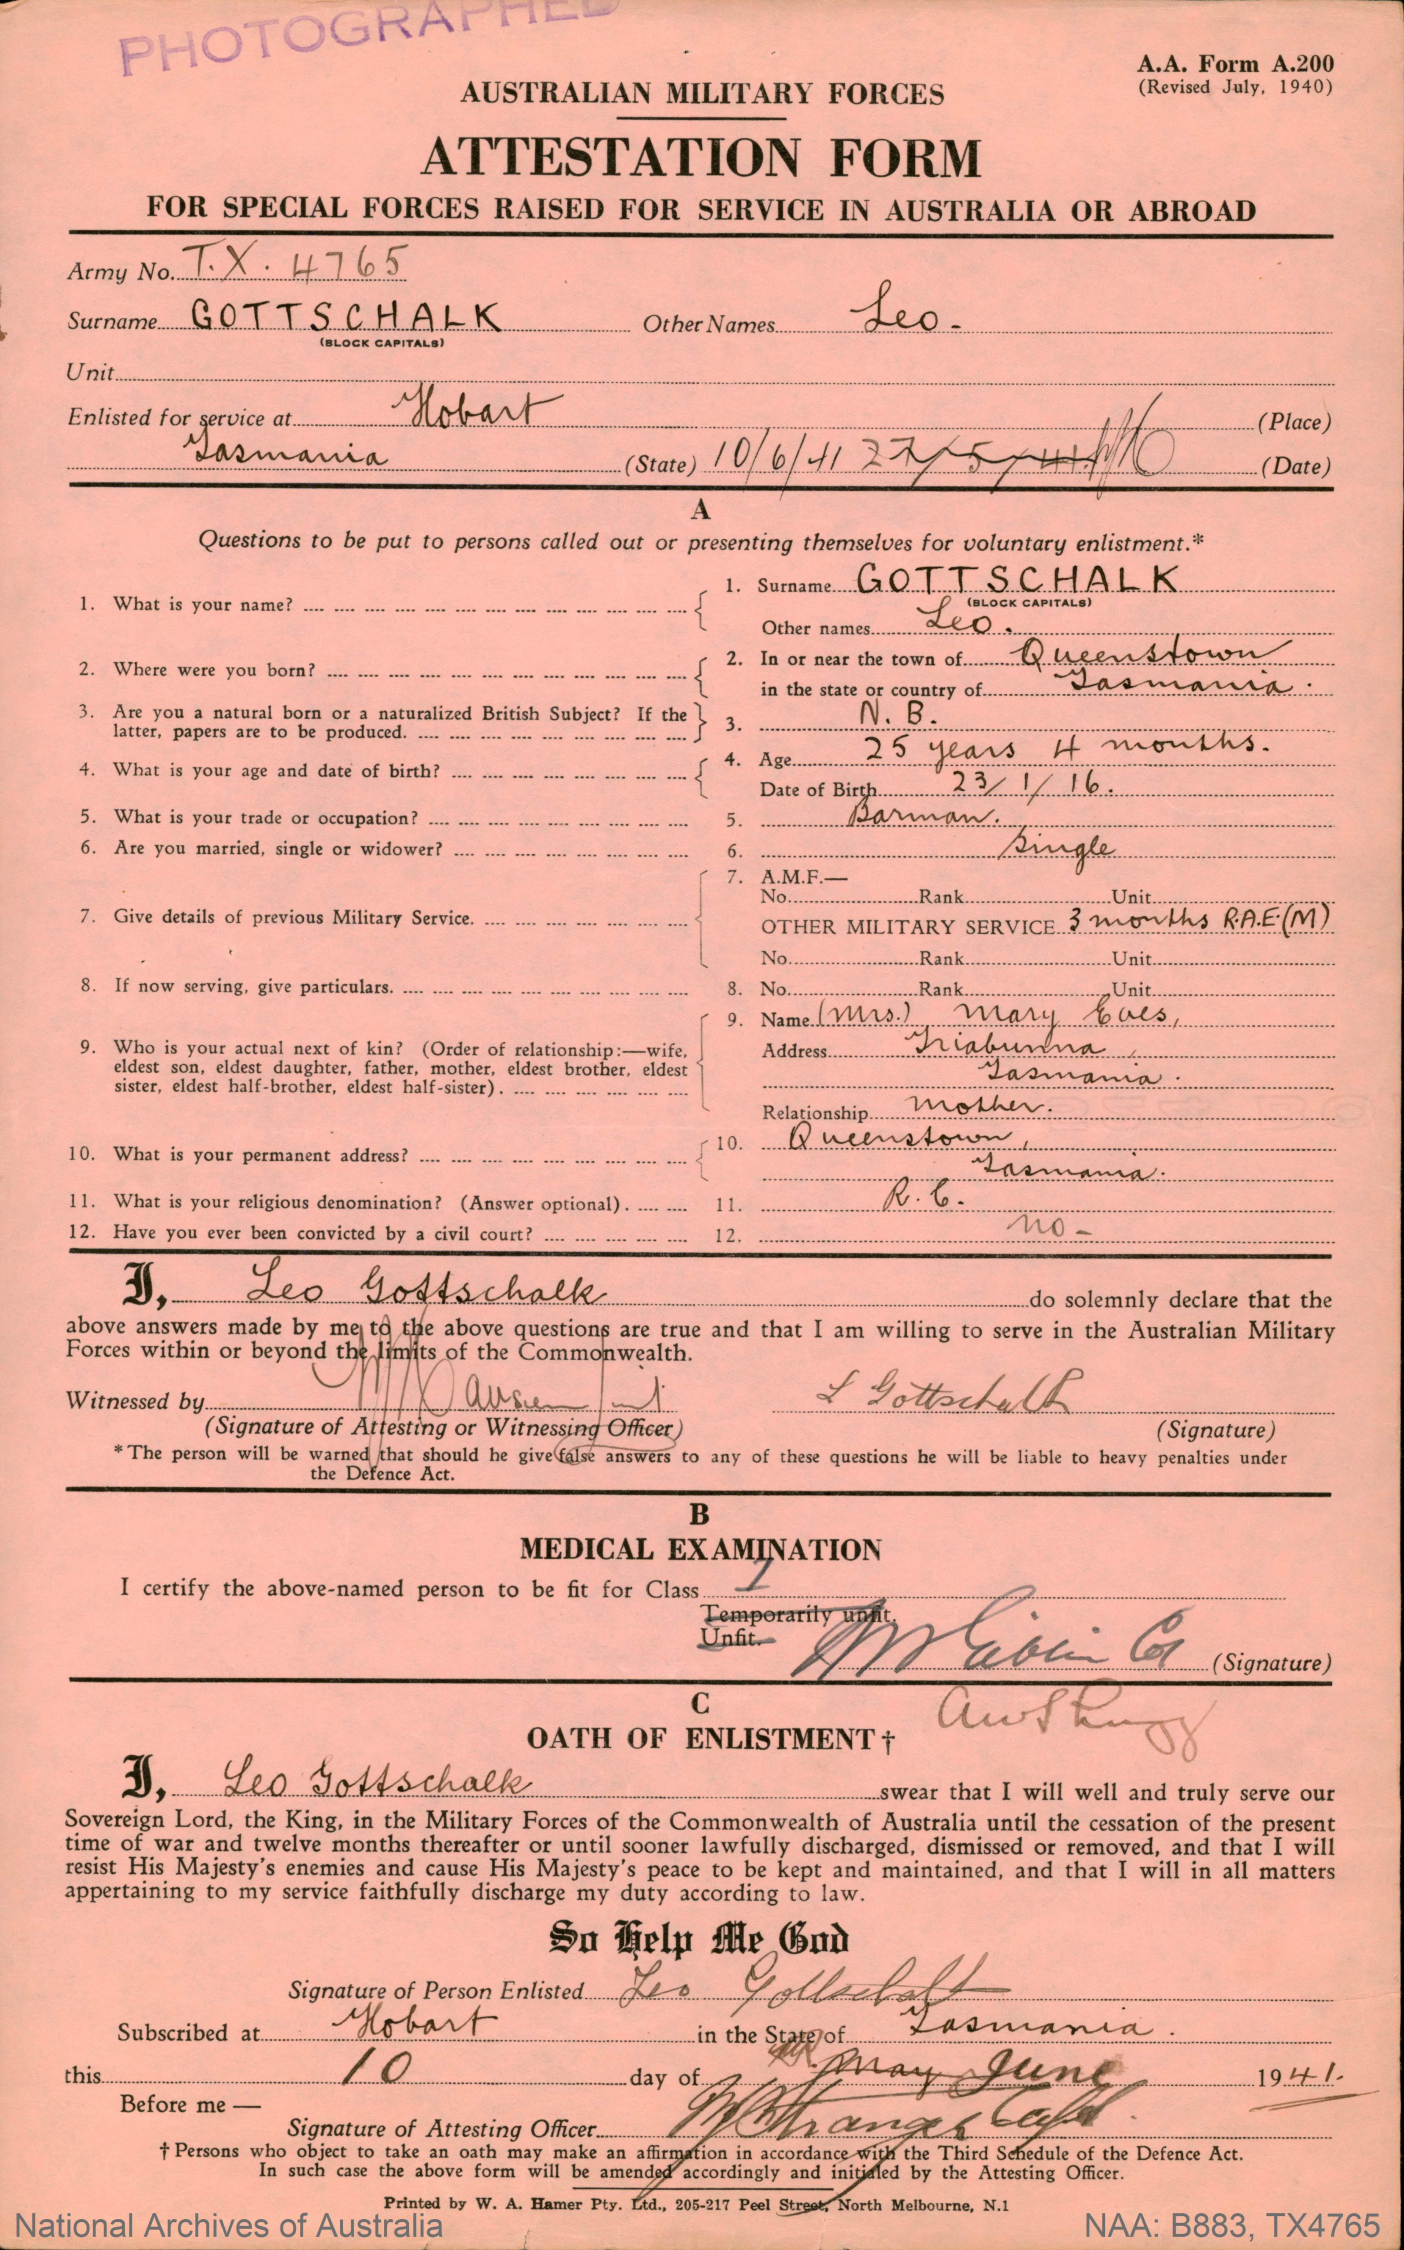 PHOTOGRAPHED
A.A. Form A.200
(Revised July, 1940)
AUSTRALIAN MILITARY FORCES
ATTESTATION FORM
FOR SPECIAL FORCES RAISED FOR SERVICE IN AUSTRALIA OR ABROAD
Army No. T.X. 4765
Surname GOTTSCHALK Other Names Leo.
(BLOCK CAPITALS)
Unit
Enlisted for service at Hobart (Place)
Tasmania (State) 10/6/41 27/5/41 (Date)
A
Questions to be put to persons called out or presenting themselves for voluntary enlistment.*
1. What is your name? 1. Surname GOTTSCHALK
(BLOCK CAPITALS)
Other names Leo.
2. Where were you born? 2. In or near the town of Queenstown
in the state or country of Tasmania.
3. Are you a natural born or a naturalized British Subject? If the latter, papers are to be produced. 3. N. B.
4. What is your age and date of birth? 4. Age 25 years 4 months.
Date of Birth 23/1/16.
5. What is your trade or occupation? 5. Barman.
6. Are you married, single or widower? 6. Single
7. Give details of previous Military Service. 7. A.M.F.—
No. Rank Unit
OTHER MILITARY SERVICE 3 months R.A.E.(M)
No. Rank Unit
8. If now serving, give particulars. 8. No. Rank Unit
9. Who is your actual next of kin? (Order of relationship:—wife, eldest son, eldest daughter, father, mother, eldest brother, eldest sister, eldest half-brother, eldest half-sister). 9. Name (Mrs.) Mary Eves,
Address Triabunna,
Tasmania.
Relationship Mother.
10. What is your permanent address? 10. Queenstown,
Tasmania.
11. What is your religious denomination? (Answer optional). 11. R. C.
12. Have you ever been convicted by a civil court? 12. No -
I, Leo Gottschalk do solemnly declare that the
above answers made by me to the above questions are true and that I am willing to serve in the Australian Military
Forces within or beyond the limits of the Commonwealth.
Witnessed by L Gottschalk
(Signature of Attesting or Witnessing Officer) (Signature)
* The person will be warned that should he give false answers to any of these questions he will be liable to heavy penalties under
the Defence Act.
B
MEDICAL EXAMINATION
I certify the above-named person to be fit for Class 1
Temporarily unfit.
Unfit.
(Signature)
C
OATH OF ENLISTMENT †
I, Leo Gottschalk swear that I will well and truly serve our
Sovereign Lord, the King, in the Military Forces of the Commonwealth of Australia until the cessation of the present
time of war and twelve months thereafter or until sooner lawfully discharged, dismissed or removed, and that I will
resist His Majesty's enemies and cause His Majesty's peace to be kept and maintained, and that I will in all matters
appertaining to my service faithfully discharge my duty according to law.
So Help Me God
Signature of Person Enlisted Leo Gottschalk
Subscribed at Hobart in the State of Tasmania.
this 10 day of May June 1941.
Before me —
Signature of Attesting Officer
† Persons who object to take an oath may make an affirmation in accordance with the Third Schedule of the Defence Act.
In such case the above form will be amended accordingly and initialed by the Attesting Officer.
Printed by W. A. Hamer Pty. Ltd., 205-217 Peel Street, North Melbourne, N.1
National Archives of Australia NAA: B883, TX4765